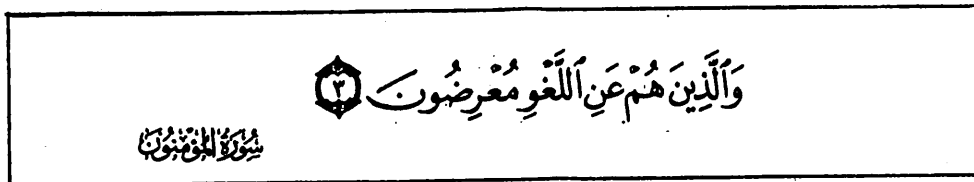 وَٱلَّذِينَ هُمْ عَنِ ٱللَّغْوِ مُعْرِضُونَ ٣
سُورَةُ المُؤْمِنُونَ